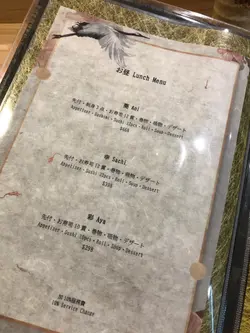 お昼 Lunch Menu
葵 Aoi
先付・刺身2点・お寿司12貫・巻物・吸物・デザート
Appetiser・Sashimi・Sushi 12pcs・Roll・Soup・Dessert
幸 Sachi
先付・お寿司12貫・巻物・吸物・デザート
Appetiser・Sushi 12pcs・Roll・Soup・Dessert
$399
彩 Aya
先付・お寿司10貫・巻物・吸物・デザート
Appetiser・Sushi 10pcs・Roll・Soup・Dessert
$299
加10%服務費
10% Service Charge